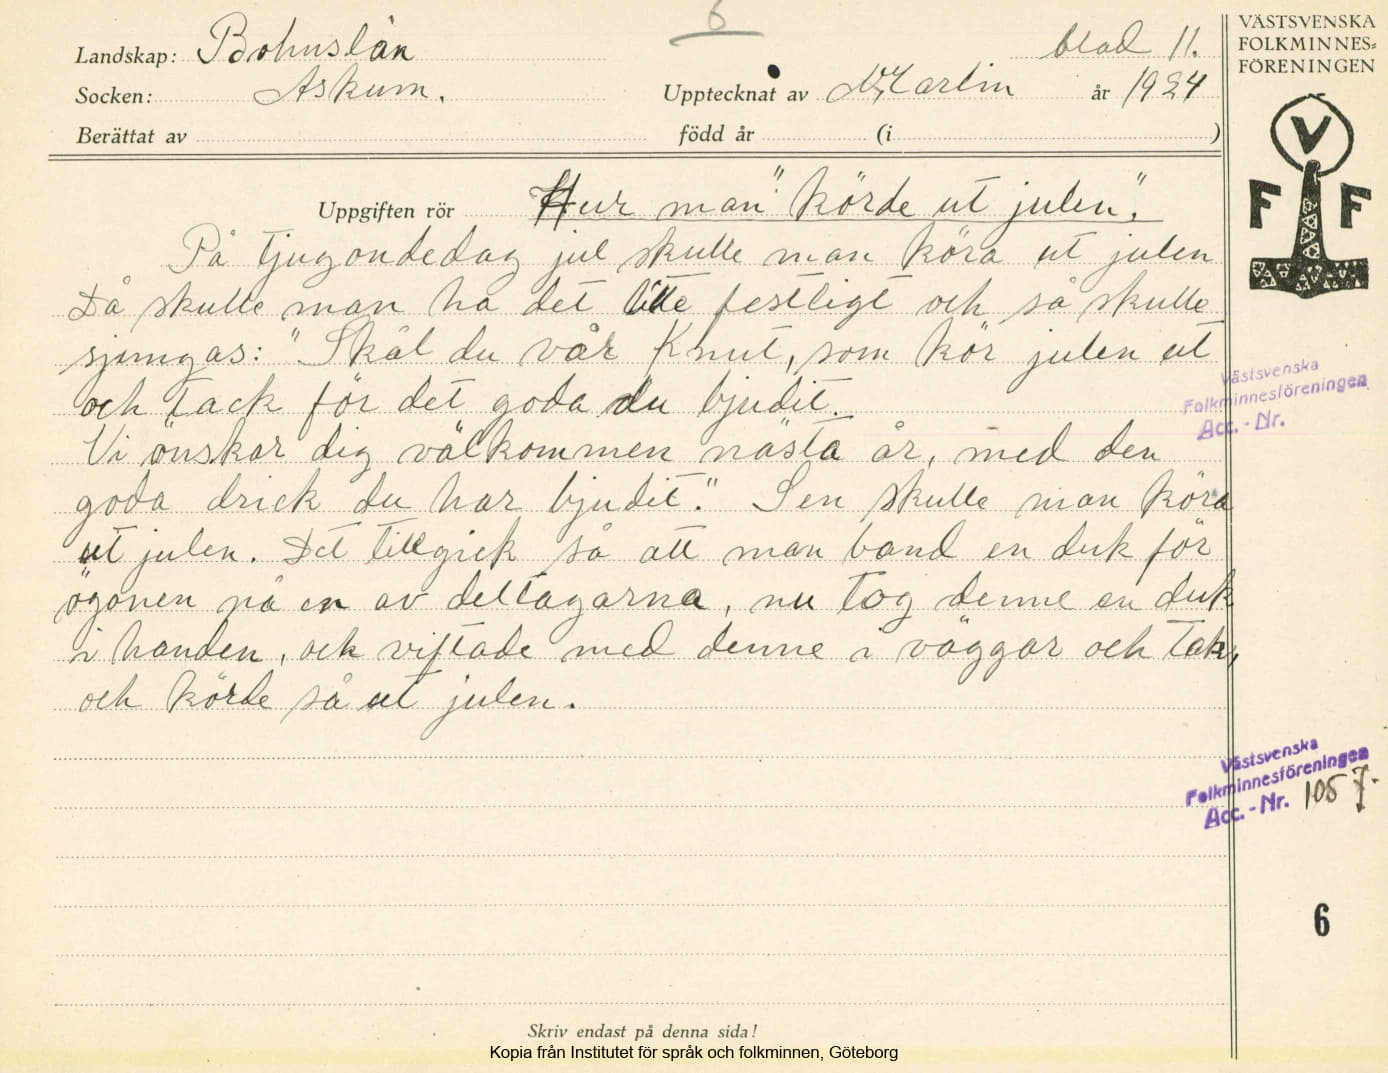 6
Landskap: Bohuslän
blad 11.
Socken: Askum.
Upptecknat av Karlin år 1924
Berättat av född år (i )
Uppgiften rör Hur man "körde ut julen".
På tjugondedag jul skulle man köra ut julen
Då skulle man ha det litte festligt och så skulle
sjungas: "Skål du vår Knut, som kör julen ut
och tack för det goda du bjudit.
Vi önskar dig välkommen nästa år, med den
goda drick du har bjudit." Sen skulle man köra
ut julen. Det tillgick så att man band en duk för
ögonen på en av deltagarna, nu tog denne en duk
i handen, och viftade med denne i väggar och tak,
och körde så ut julen.
VÄSTSVENSKA
FOLKMINNES=
FÖRENINGEN
V
F F
Västsvenska
Folkminnesföreningen
Acc. - Nr.
Västsvenska
Folkminnesföreningen
Acc. - Nr. 1057.
6
Skriv endast på denna sida!
Kopia från Institutet för språk och folkminnen, Göteborg